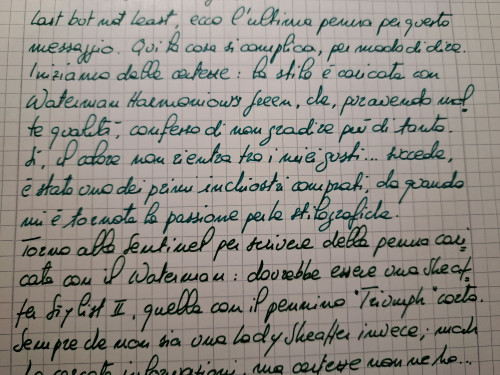 Last but not least, ecco l'ultima penna per questo
messaggio. Qui la cosa si complica, per modo di dire.
Iniziamo dalle certezze: la stilo è caricata con
Waterman Harmonious Green, che, pur avendo mol
te qualità, confesso di non gradire più di tanto.
Sì, il colore non rientra tra i miei gusti... succede,
è stato uno dei primi inchiostri comprati, da quando
mi è tornata la passione per la stilografica.
Torno alla Sentinel per scrivere della penna cari
cata con il Waterman: dovrebbe essere una Sheaf-
fer Stylist II, quella con il pennino "Triumph" corto.
Sempre che non sia una Lady Sheaffer invece;
ho cercato informazioni, ma certezze non ne ho...